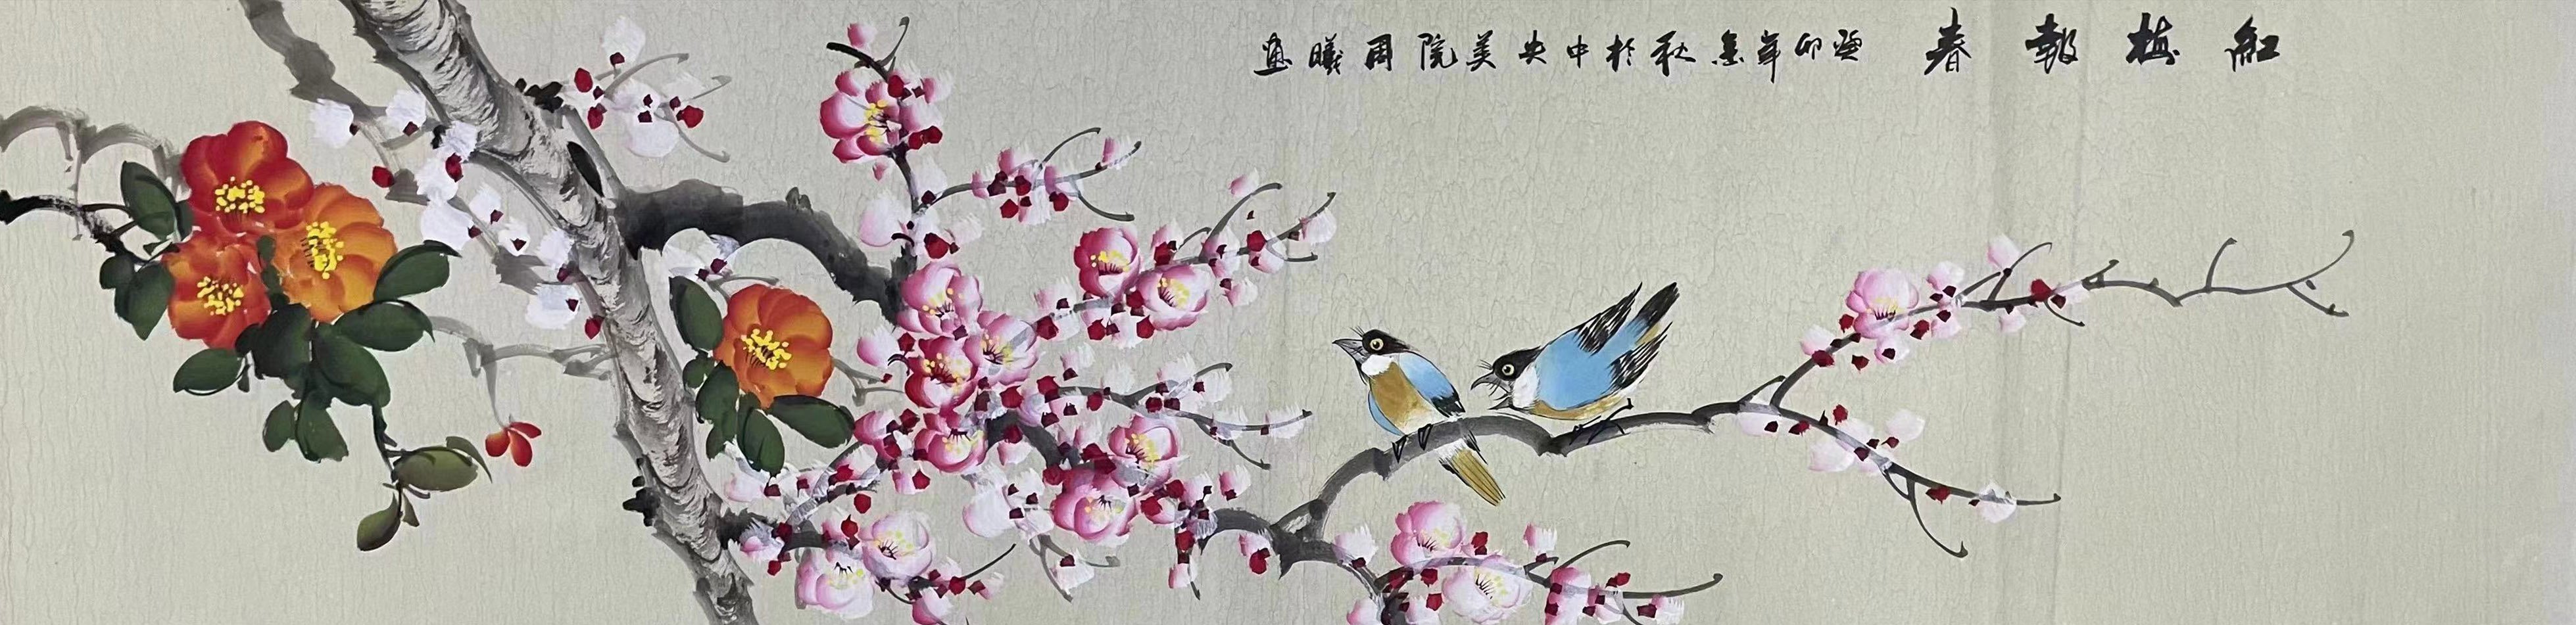 紅梅報春 癸卯年金秋於中央美院周曦畫